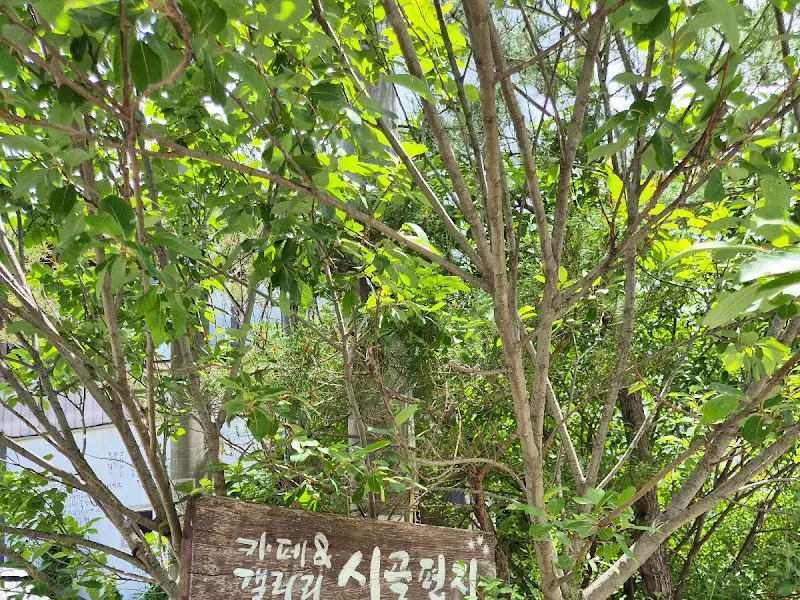 카페&
갤러리
시골편지